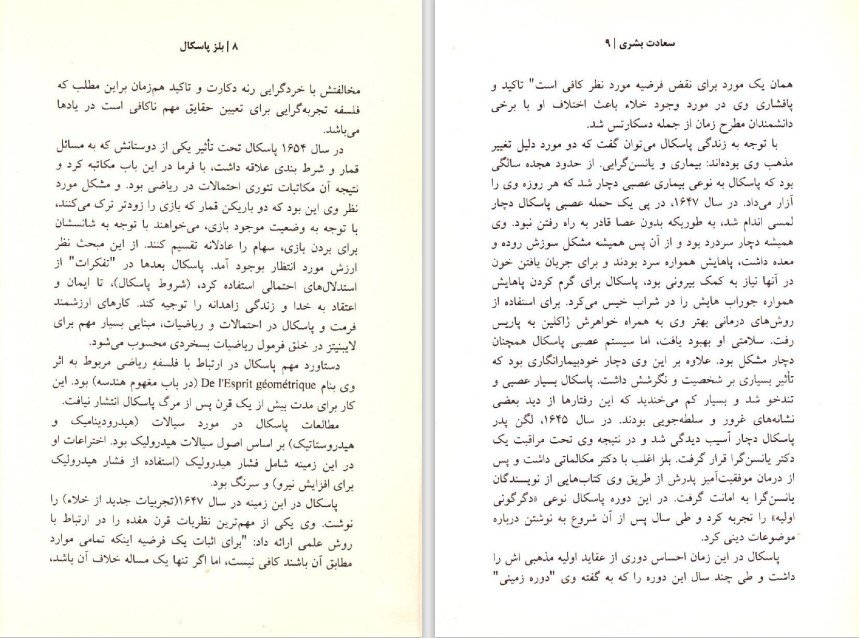 ۸ | بلز پاسکال
مخالفتش با خردگرایی رنه دکارت و تاکید هم‌زمان براین مطلب که
فلسفه تجربه‌گرایی برای تعیین حقایق مهم ناکافی است در یادها
می‌باشد.
در سال ۱۶۵۴ پاسکال تحت تأثیر یکی از دوستانش که به مسائل
قمار و شرط بندی علاقه داشت، با فرما در این باب مکاتبه کرد و
نتیجه آن مکاتبات تئوری احتمالات در ریاضی بود. و مشکل مورد
نظر وی این بود که دو باریکن قمار که بازی را زودتر ترک می‌کنند،
با توجه به وضعیت موجود بازی، می‌خواهند با توجه به شانسشان
برای بردن بازی، سهام را عادلانه تقسیم کنند. از این مبحث نظر
ارزش مورد انتظار بوجود آمد. پاسکال بعدها در "تفکرات" از
استدلال‌های احتمالی استفاده کرد، (شروط پاسکال)، تا ایمان و
اعتقاد به خدا و زندگی زاهدانه را توجیه کند. کارهای ارزشمند
فرمت و پاسکال در احتمالات و ریاضیات، مبنایی بسیار مهم برای
لایبنیتز در خلق فرمول ریاضیات بسخردی محسوب می‌شود.
دستاورد مهم پاسکال در ارتباط با فلسفهِ ریاضی مربوط به اثر
وی بنام De l'Esprit géométrique (در باب مفهوم هندسه) بود. این
کار برای مدت بیش از یک قرن پس از مرگ پاسکال انتشار نیافت.
مطالعات پاسکال در مورد سیالات (هیدرودینامیک و
هیدروستاتیک) بر اساس اصول سیالات هیدرولیک بود. اختراعات او
در این زمینه شامل فشار هیدرولیک (استفاده از فشار هیدرولیک
برای افزایش نیرو) و سرنگ بود.
پاسکال در این زمینه در سال ۱۶۴۷(تجربیات جدید از خلاء) را
نوشت. وی یکی از مهم‌ترین نظریات قرن هفده را در ارتباط با
روش علمی ارائه داد: "برای اثبات یک فرضیه اینکه تمامی موارد
مطابق آن باشند کافی نیست، اما اگر تنها یک مساله خلاف آن باشد،
سعادت بشری | ۹
همان یک مورد برای نقض فرضیه مورد نظر کافی است" تاکید و
پافشاری وی در مورد وجود خلاء باعث اختلاف او با برخی
دانشمندان مطرح زمان از جمله دسکارتس شد.
با توجه به زندگی پاسکال می‌توان گفت که دو مورد دلیل تغییر
مذهب وی بوده‌اند: بیماری و یانسن‌گرایی. از حدود هجده سالگی
بود که پاسکال به نوعی بیماری عصبی دچار شد که هر روزه وی را
آزار می‌داد. در سال ۱۶۴۷، در پی یک حمله عصبی پاسکال دچار
لمسی اندام شد، به طوریکه بدون عصا قادر به راه رفتن نبود. وی
همیشه دچار سردرد بود و از آن پس همیشه مشکل سوزش روده و
معده داشت، پاهایش همواره سرد بودند و برای جریان یافتن خون
در آنها نیاز به کمک بیرونی بود، پاسکال برای گرم کردن پاهایش
همواره جوراب هایش را در شراب خیس می‌کرد. برای استفاده از
روش‌های درمانی بهتر وی به همراه خواهرش ژاکلین به پاریس
رفت. سلامتی او بهبود یافت، اما سیستم عصبی پاسکال همچنان
دچار مشکل بود. علاوه بر این وی دچار خودبیمارانگاری بود که
تأثیر بسیاری بر شخصیت و نگرشش داشت. پاسکال بسیار عصبی و
تندخو شد و بسیار کم می‌خندید که این رفتارها از دید بعضی
نشانه‌های غرور و سلطه‌جویی بودند. در سال ۱۶۴۵، لگن پدر
پاسکال دچار آسیب دیدگی شد و در نتیجه وی تحت مراقبت یک
دکتر یانسن‌گرا قرار گرفت. بلز اغلب با دکتر مکالماتی داشت و پس
از درمان موفقیت‌آمیز پدرش از طریق وی کتاب‌هایی از نویسندگان
یانسن‌گرا به امانت گرفت. در این دوره پاسکال نوعی «دگرگونی
اولیه» را تجربه کرد و طی سال پس از آن شروع به نوشتن درباره
موضوعات دینی کرد.
پاسکال در این زمان احساس دوری از عقاید اولیه مذهبی اش را
داشت و طی چند سال این دوره را که به گفته وی "دوره زمینی"